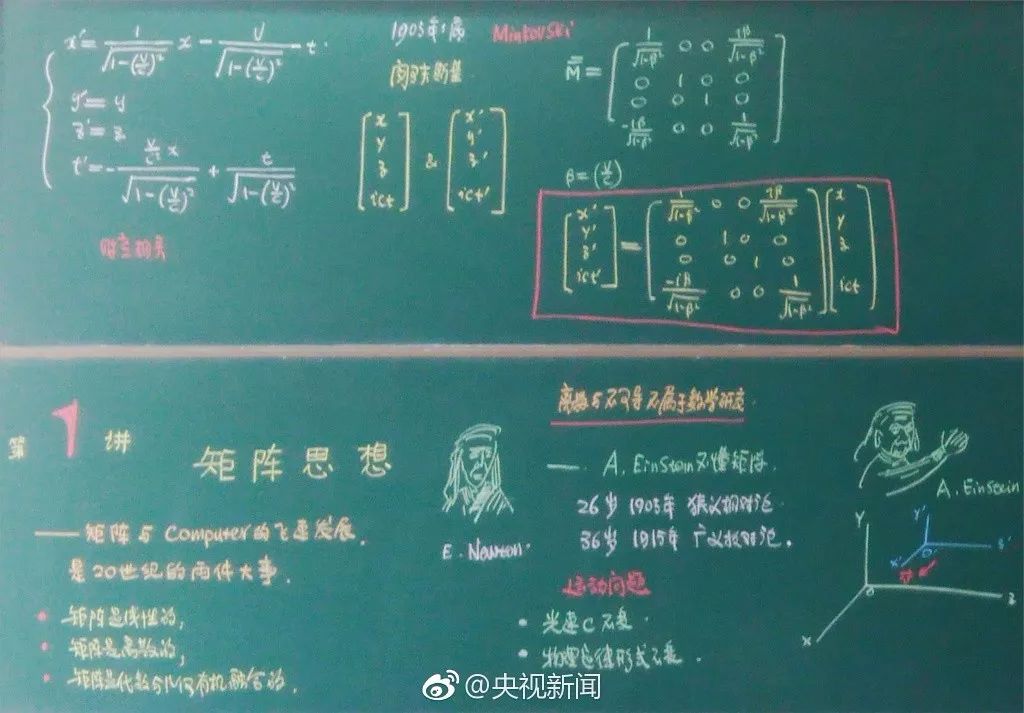 x' = 1/√(1-(v/c)²) x - v/√(1-(v/c)²) t
y' = y
z' = z
t' = - (v/c² x)/√(1-(v/c)²) + t/√(1-(v/c)²)
时空相关
1905年
Minkovski
[x y z ict] & [x' y' z' ict']
M = [1/√(1-β²) 0 0 iβ/√(1-β²)
0 1 0 0
0 0 1 0
-iβ/√(1-β²) 0 0 1/√(1-β²)]
β = (v/c)
[x' y' z' ict'] = [1/√(1-β²) 0 0 iβ/√(1-β²)
0 1 0 0
0 0 1 0
-iβ/√(1-β²) 0 0 1/√(1-β²)] [x y z ict]
第1讲
矩阵思想
—— 矩阵与Computer的飞速发展,
是20世纪的两件大事.
• 矩阵是线性的,
• 矩阵是离散的,
• 矩阵是代数与几何有机融合的.
E. Newton.
离散与不可导不属于数学研究.
—— A. Einstein不懂矩阵.
26岁 1905年 狭义相对论.
36岁 1915年 广义相对论.
运动问题
• 光速C不变.
• 物理定律形式不变.
A. Einstein
Y
X
Z
O
Y'
X'
Z'
O'
@央视新闻